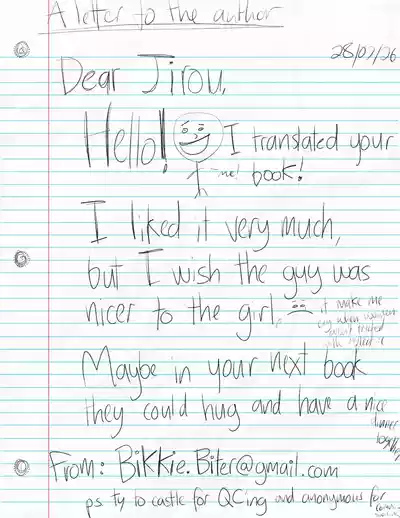 A letter to the author
28/02/26
Dear Jirou,
Hello!
me!
I translated your
book!
I liked it very much,
but I wish the guy was
nicer to the girl.
it make me
cry when
with respect
Maybe in your next book
they could hug and have a nice
dinner
together
From: Bikkie.Biter@gmail.com
ps. ty to castle for QCing and anonymous for